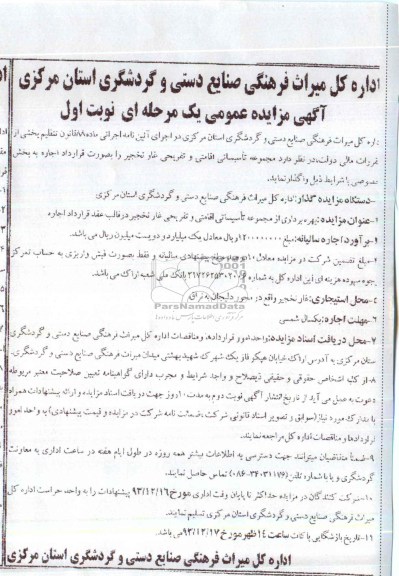 اداره کل میراث فرهنگی صنایع دستی و گردشگری استان مرکزی
آگهی مزایده عمومی یک مرحله ای نوبت اول
اداره کل میراث فرهنگی صنایع دستی و گردشگری استان مرکزی در اجرای آئین نامه اجرائی ماده۸۸قانون تنظیم بخشی از
مقررات مالی دولت،در نظر دارد مجموعه تأسیساتی اقامتی و تفریحی غار نخجیر را بصورت قرارداد اجاره به بخش
خصوصی با شرایط ذیل واگذار نماید.
-دستگاه مزایده گذار:اداره کل میراث فرهنگی صنایع دستی و گردشگری استان مرکزی
-عنوان مزایده:بهره برداری از مجموعه تأسیساتی اقامتی و تفریحی غار نخجیر در قالب عقد قرارداد اجاره
-برآورد:اجاره سالیانه:مبلغ ۱۲۰۰۰۰۰۰۰۰ریال معادل یک میلیارد و دویست میلیون ریال می باشد.
-مبلغ تضمین شرکت در مزایده معادل۱۰ پیشنهادی سالیانه و فقط بصورت فیش واریزی به حساب تمرکز
وجوه سپرده هزینه ای این اداره کل به شماره بانک ملی شعبه اراک می باشد.
۴-محل استیجاری:غار نخجیر واقع در محور دلیجان به نراق
۶-مهلت اجاره:یکسال شمسی
۷-محل دریافت اسناد مزایده:واحد امور قراردادها و مناقصات اداره کل میراث فرهنگی صنایع دستی و گردشگری
استان مرکزی به آدرس اراک خیابان هپکو فاز یک شهرک شهید بهشتی میدان میراث فرهنگی
۸-از کلیه اشخاص حقوقی و حقیقی ذیصلاح و واجد شرایط و مجرب دارای گواهینامه تعیین صلاحیت معتبر مربوطه
دعوت به عمل می آید از تاریخ انتشار آگهی نوبت دوم به مدت۱۰روز جهت دریافت اسناد مزایده و ارائه پیشنهادات همراه
با مدارک مورد نیاز(سوابق و تصویر اسناد قانونی شرکت،ضمانت نامه شرکت در مزایده و قیمت پیشنهادی) به واحد امور
قراردادها و مناقصات اداره کل مراجعه نمایند.
۹-ضمناً متقاضیان میتوانند جهت دسترسی به اطلاعات بیشتر همه روزه در طول ایام هفته در ساعت اداری به معاونت
گردشگری و یا با شماره تلفن(۳۴۰۳۱۱۷۶-۰۸۶) تماس حاصل نمایند.
۱۰-شرکت کنندگان در مزایده حداکثر تا پایان وقت اداری مورخ۹۳/۱۲/۱۶ پیشنهادات را به واحد حراست اداره کل
میراث فرهنگی صنایع دستی و گردشگری استان مرکزی تسلیم نمایند.
۱۱-تاریخ بازگشایی پاکات ساعت ۱۴ظهر مورخ ۹۳/۱۲/۱۷می باشد.
اداره کل میراث فرهنگی صنایع دستی و گردشگری استان مرکزی
ParsNamadData